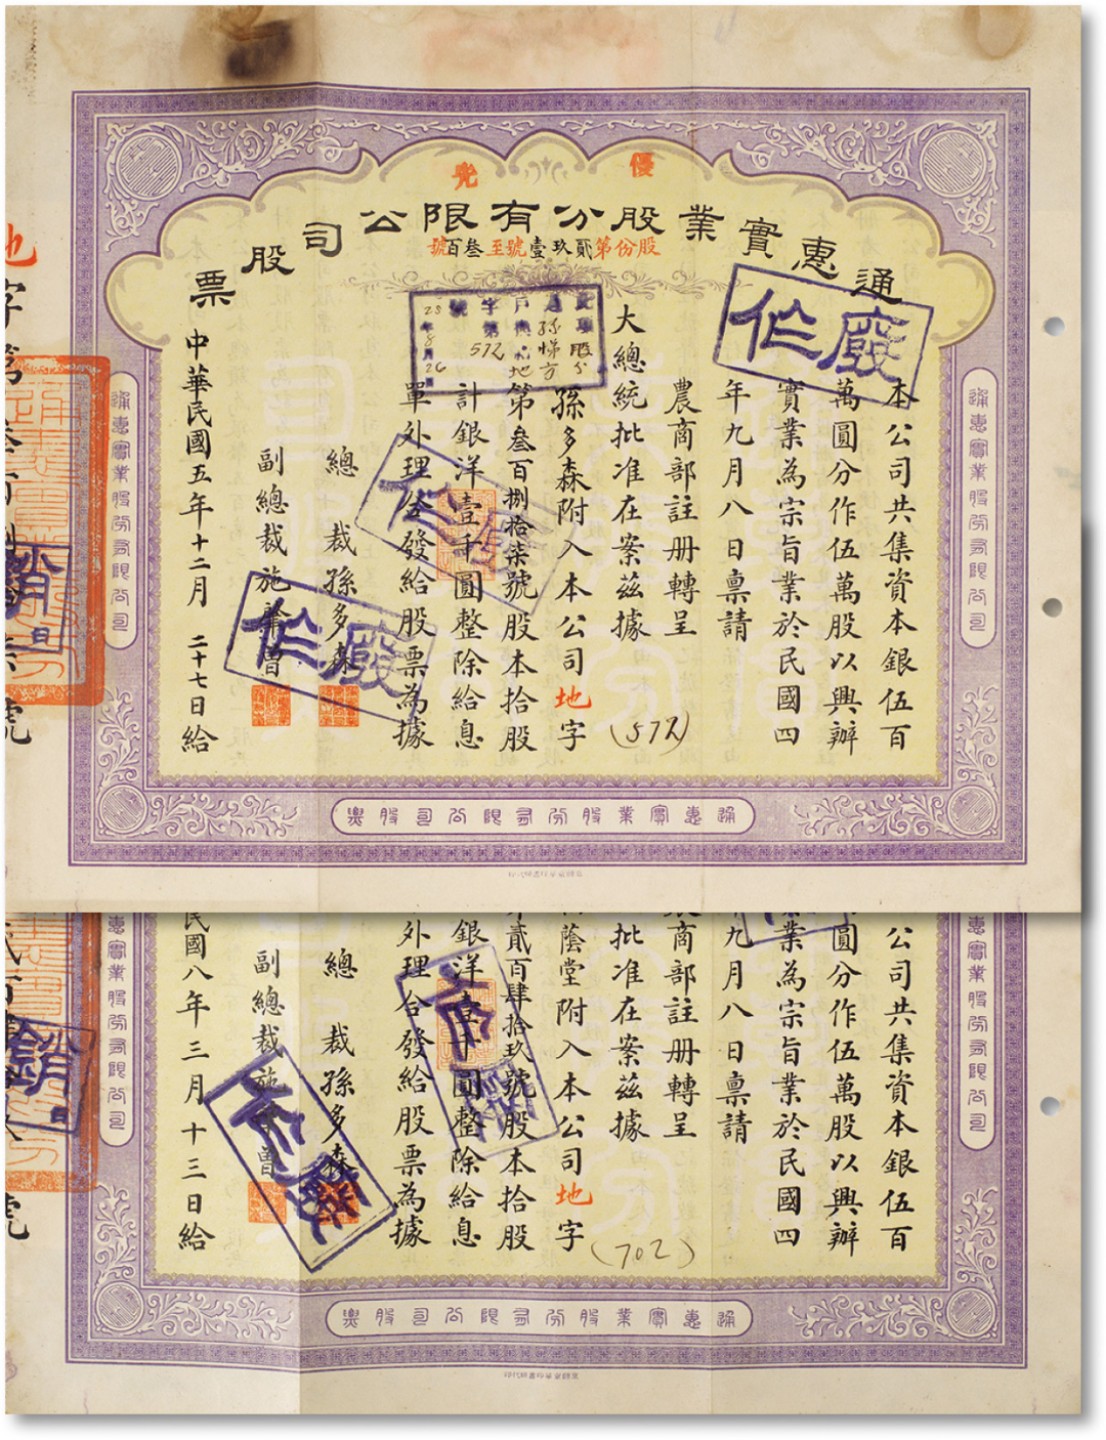 優先
通惠實業股分有限公司股票
股份第貳玖壹號至叁百號
廢作
本公司共集資本銀伍百
萬圓分作伍萬股以興辦
實業為宗旨業於民國四
年九月八日稟請
農商部註册轉呈
大總統批准在案茲據
孫多森附入本公司地字
第叁百捌拾柒號股本拾股
計銀洋壹千圓整除給息
單外理合發給股票為據
總裁孫多森
副總裁施
曾
中華民國五年十二月二十七日給
(572)
572
28年8月26
廢作
通惠實業股份有限公司
通惠實業股份有限公司
通惠實業股份有限公司股票
地字第叁百
號
公司共集資本銀伍百
圓分作伍萬股以興辦
業為宗旨業於民國四
九月八日稟請
商部註册轉呈
批准在案茲據
蔭堂附入本公司地字
貳百肆拾玖號股本拾股
銀洋壹千圓整除給息
外理合發給股票為據
總裁孫多森
副總裁施
曾
民國八年三月十三日給
(702)
作廢
銷
號
通惠實業股份有限公司股票